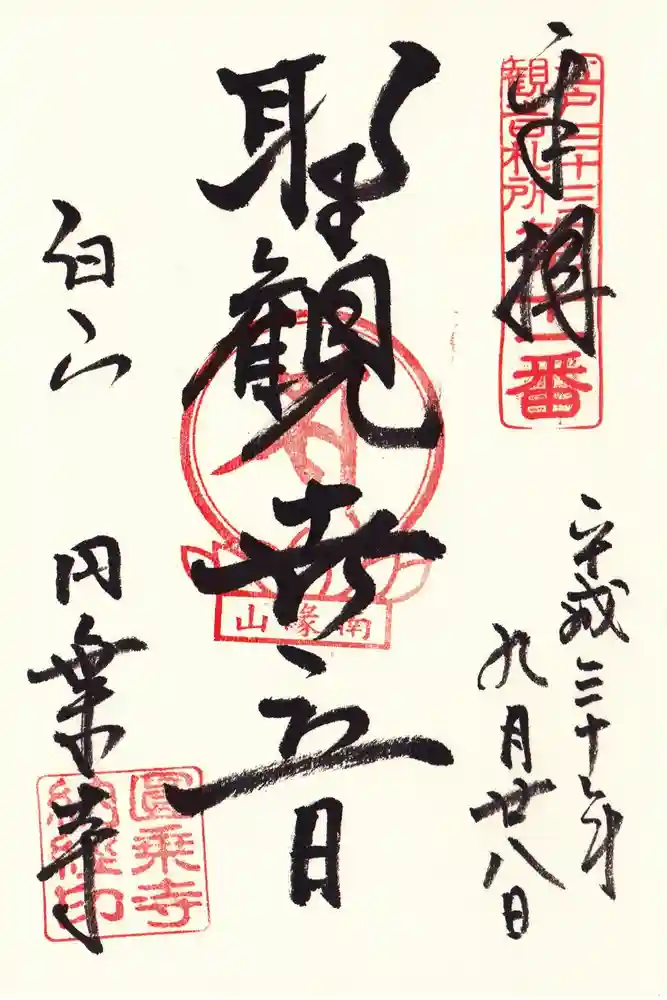 奉拝
江戸三十三
観音札所
第十一番
平成三十年
九月廿八日
聖観世音
南縁山
白山
円乗寺
圓乗寺
納経印